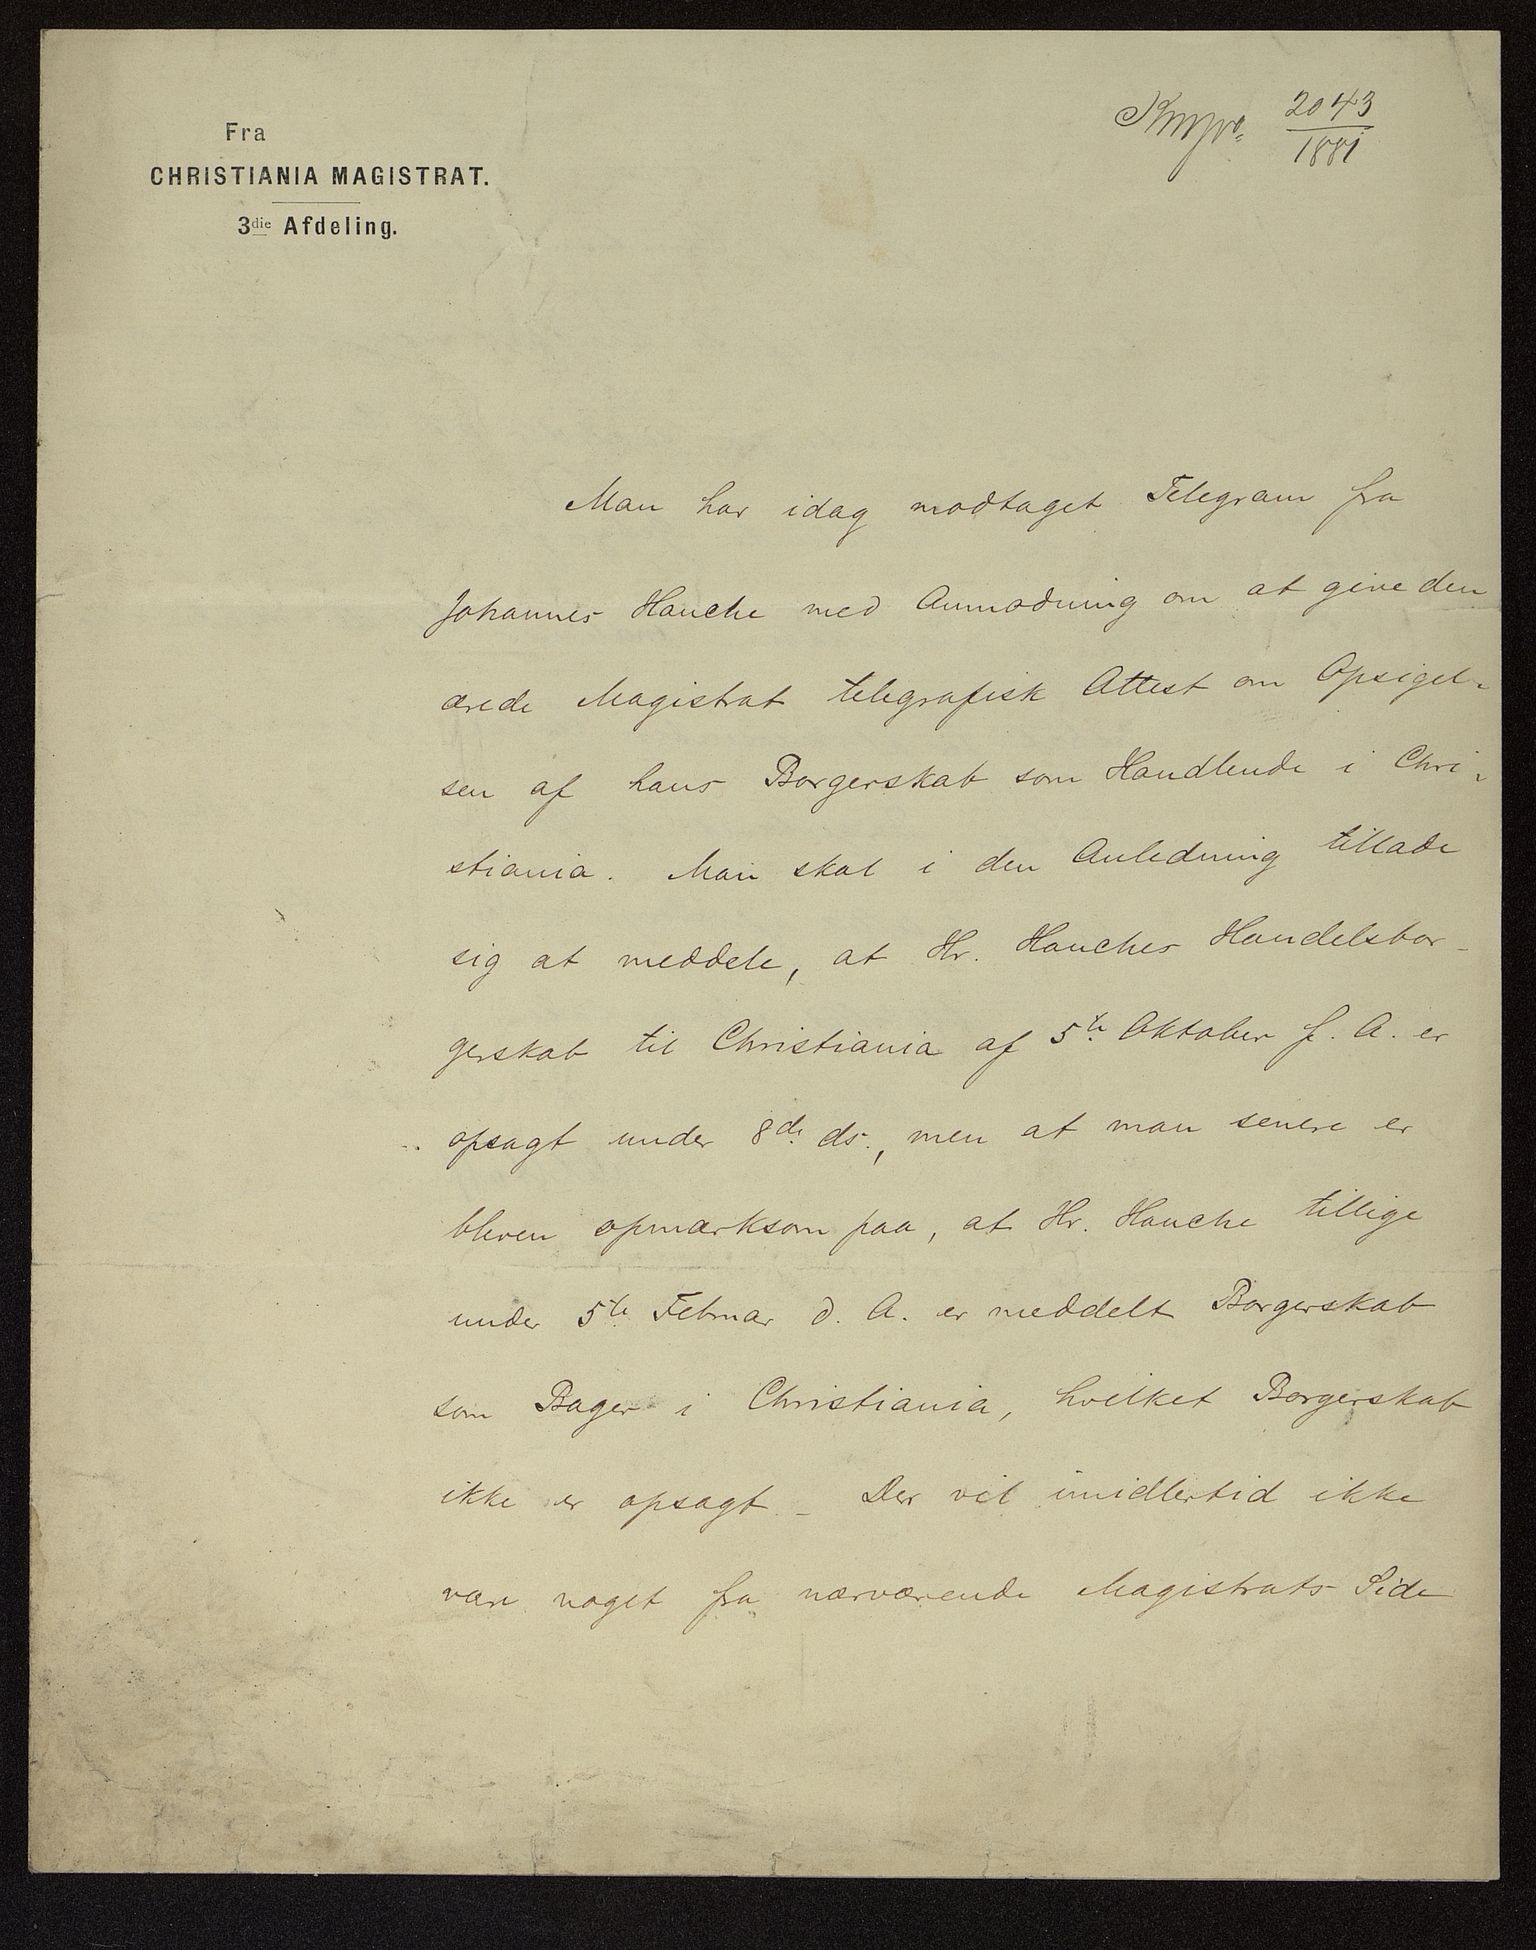 Fra
CHRISTIANIA MAGISTRAT.
3die Afdeling.
2043
1881
Man har idag modtaget Telegram fra
Johannes Hauche med Anmodning om at give den
ærede Magistrat telegrafisk Attest om Opsigel-
sen af hans Borgerskab som Handlende i Chri-
stiania. Man skal i den Anledning tillade
sig at meddele, at Hr. Hauches Handelsbor-
gerskab til Christiania af 5te Oktober f. A. er
opsagt under 8de ds., men at man senere er
bleven opmærksom paa, at Hr. Hauche tillige
under 5te Februar d. A. er meddelt Borgerskab
som Bager i Christiania, hvilket Borgerskab
ikke er opsagt. - Der vil imidlertid ikke
være noget fra nærværende Magistrats Side